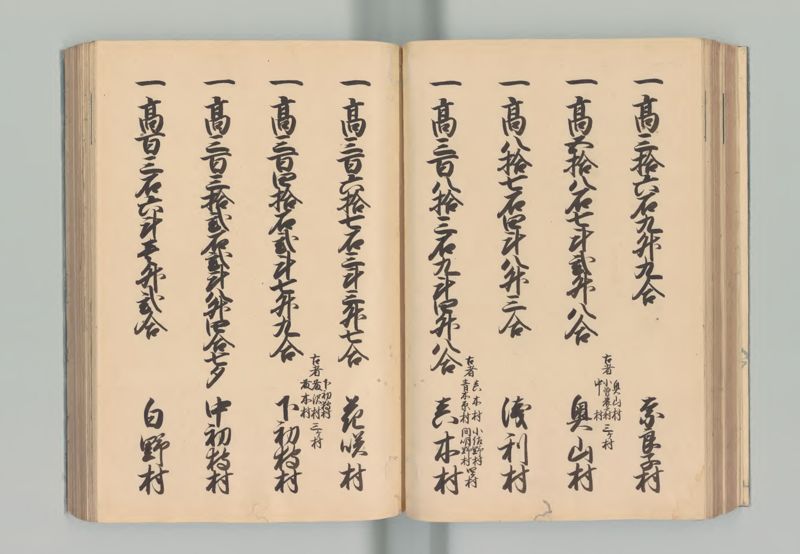 一高三拾六石九升九合 奈良子村
一高五拾八石七斗弐升八合 奥山村
古者 奥山村 小曽根村 中村 三ケ村
一高八拾七石四斗八升三合 浅利村
一高三百八拾三石九斗四升八合 真木村
古者 真木村 青木原村 小佐野村 間明野村 四ケ村
一高三百六拾七石三斗三升七合 花咲村
一高三百四拾石弐斗七升九合 下初狩村
古者 下初狩村 藤沢村 村 三ケ村
一高三百三拾弐石弐斗八升四合七夕 中初狩村
一高百三石六斗壱升弐合 白野村